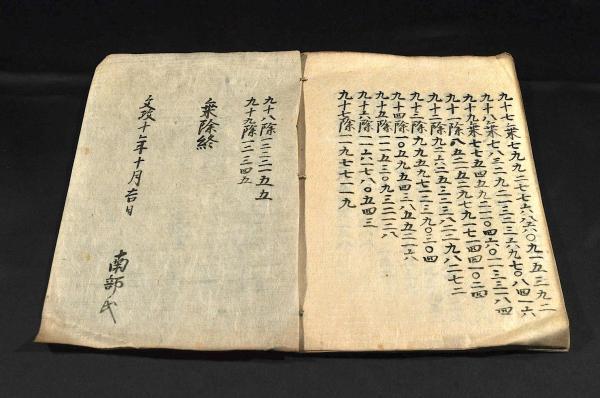 九十七乗七九九二七七六八六〇九一五三九二
九十八乗七八三二九二一三二三六九七〇八四一六
九十九乗七七五四五九二一一〇四六〇一一三三一八四
九十一除八五二一五二九七九一七一四四一〇二四
九十二除九二六二五三二三八二二九八二七二
九十三除九九五九七一二二三九〇三〇四
九十四除一〇五九五四三八五五二一六
九十五除一一一五三〇九三二一二八
九十六除一一六一七八〇五四三
九十七除一一九七七一一九
九十八除一二二二一五五
九十九除一二三四五
乗除終
文政十年十月吉日
南部氏